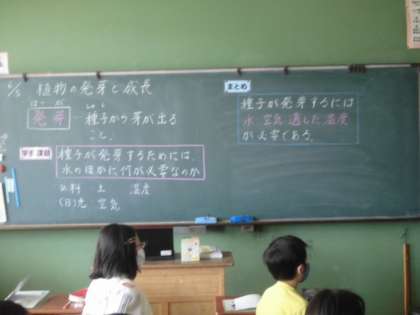 植物の発芽と成長
はつ が
発芽…種子から芽が出る
こと。
学習課題
種子が発芽するためには、
水のほかに何が必要なのか
肥料 土 温度
(日)光 空気
まとめ
種子が発芽するには
水、空気、適した温度
が必要である。